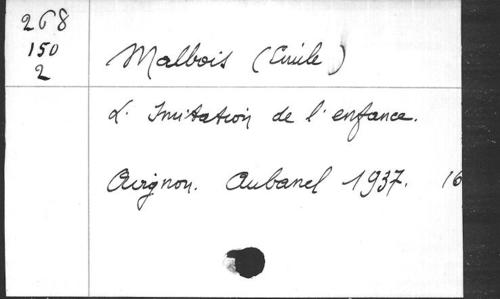 268
150
2
Malbois (Emile)
L' Imitation de l'enfance.
Avignon. Aubanel 1937. 16